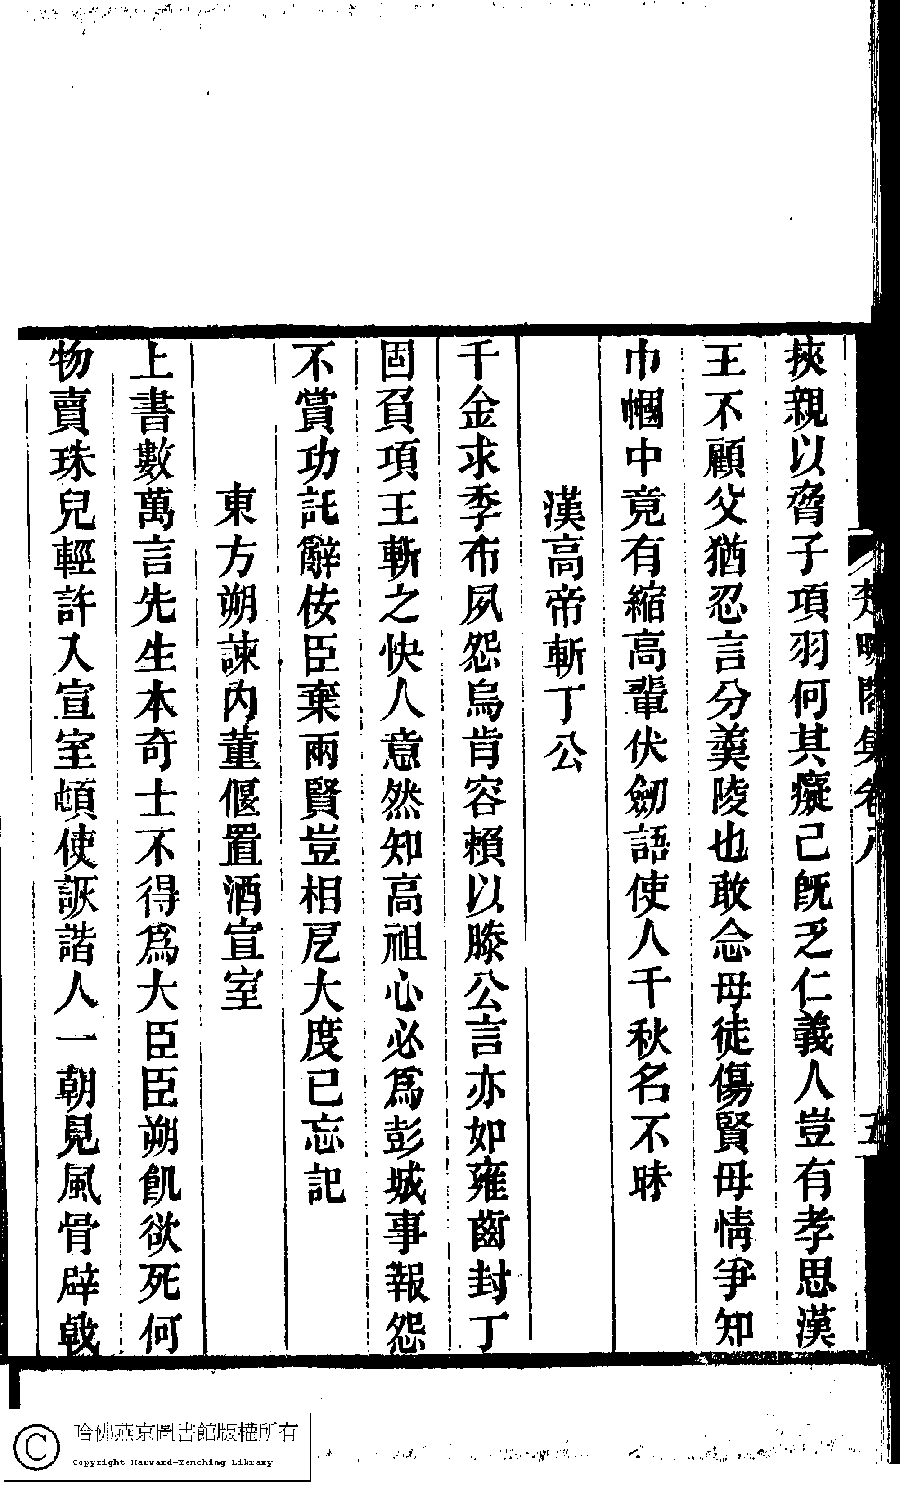 挾親以脅子項羽何其癡己旣乏仁義人豈有孝思漢
王不顧父猶忍言分羹陵也敢念母徒傷賢母情爭知
巾幗中竟有縮高輩伏劒語使人千秋名不昧
漢高帝斬丁公
千金求季布夙怨烏肯容賴以滕公言亦如雍齒封丁
固負項王斬之快人意然知高祖心必爲彭城事報怨
不賞功託辭佞臣棄兩賢豈相戹大度已忘記
東方朔諫內董偃置酒宣室
上書數萬言先生本奇士不得爲大臣臣朔飢欲死何
物賣珠兒輕許入宣室頓使詼諧人一朝見風骨辟戟
集卷八
五
哈佛燕京圖書館版權所有
Copyright Harvard-Yenching Library